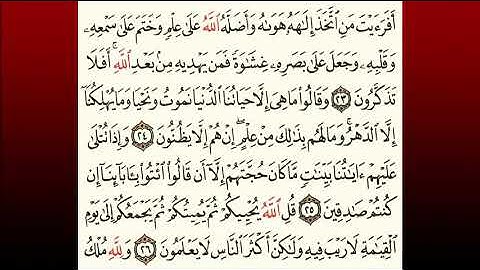 أَفَرَءَيْتَ مَنِ ٱتَّخَذَ إِلَٰهَهُۥ هَوَىٰهُ وَأَضَلَّهُ ٱللَّهُ عَلَىٰ عِلْمٍ وَخَتَمَ عَلَىٰ سَمْعِهِۦ
وَقَلْبِهِۦ وَجَعَلَ عَلَىٰ بَصَرِهِۦ غِشَٰوَةً فَمَن يَهْدِيهِ مِنۢ بَعْدِ ٱللَّهِ ۚ أَفَلَا
تَذَكَّرُونَ ٢٣ وَقَالُوا۟ مَا هِىَ إِلَّا حَيَاتُنَا ٱلدُّنْيَا نَمُوتُ وَنَحْيَا وَمَا يُهْلِكُنَآ
إِلَّا ٱلدَّهْرُ ۚ وَمَا لَهُم بِذَٰلِكَ مِنْ عِلْمٍ ۖ إِنْ هُمْ إِلَّا يَظُنُّونَ ٢٤ وَإِذَا تُتْلَىٰ
عَلَيْهِمْ ءَايَٰتُنَا بَيِّنَٰتٍ مَّا كَانَ حُجَّتَهُمْ إِلَّآ أَن قَالُوا۟ ٱئْتُوا۟ بِـَٔابَآئِنَآ إِن
كُنتُمْ صَٰدِقِينَ ٢٥ قُلِ ٱللَّهُ يُحْيِيكُمْ ثُمَّ يُمِيتُكُمْ ثُمَّ يَجْمَعُكُمْ إِلَىٰ يَوْمِ
ٱلْقِيَٰمَةِ لَا رَيْبَ فِيهِ وَلَٰكِنَّ أَكْثَرَ ٱلنَّاسِ لَا يَعْلَمُونَ ٢٦ وَلِلَّهِ مُلْكُ